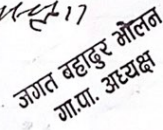 जगत बहादुर भोलन
गा.पा. अध्यक्ष